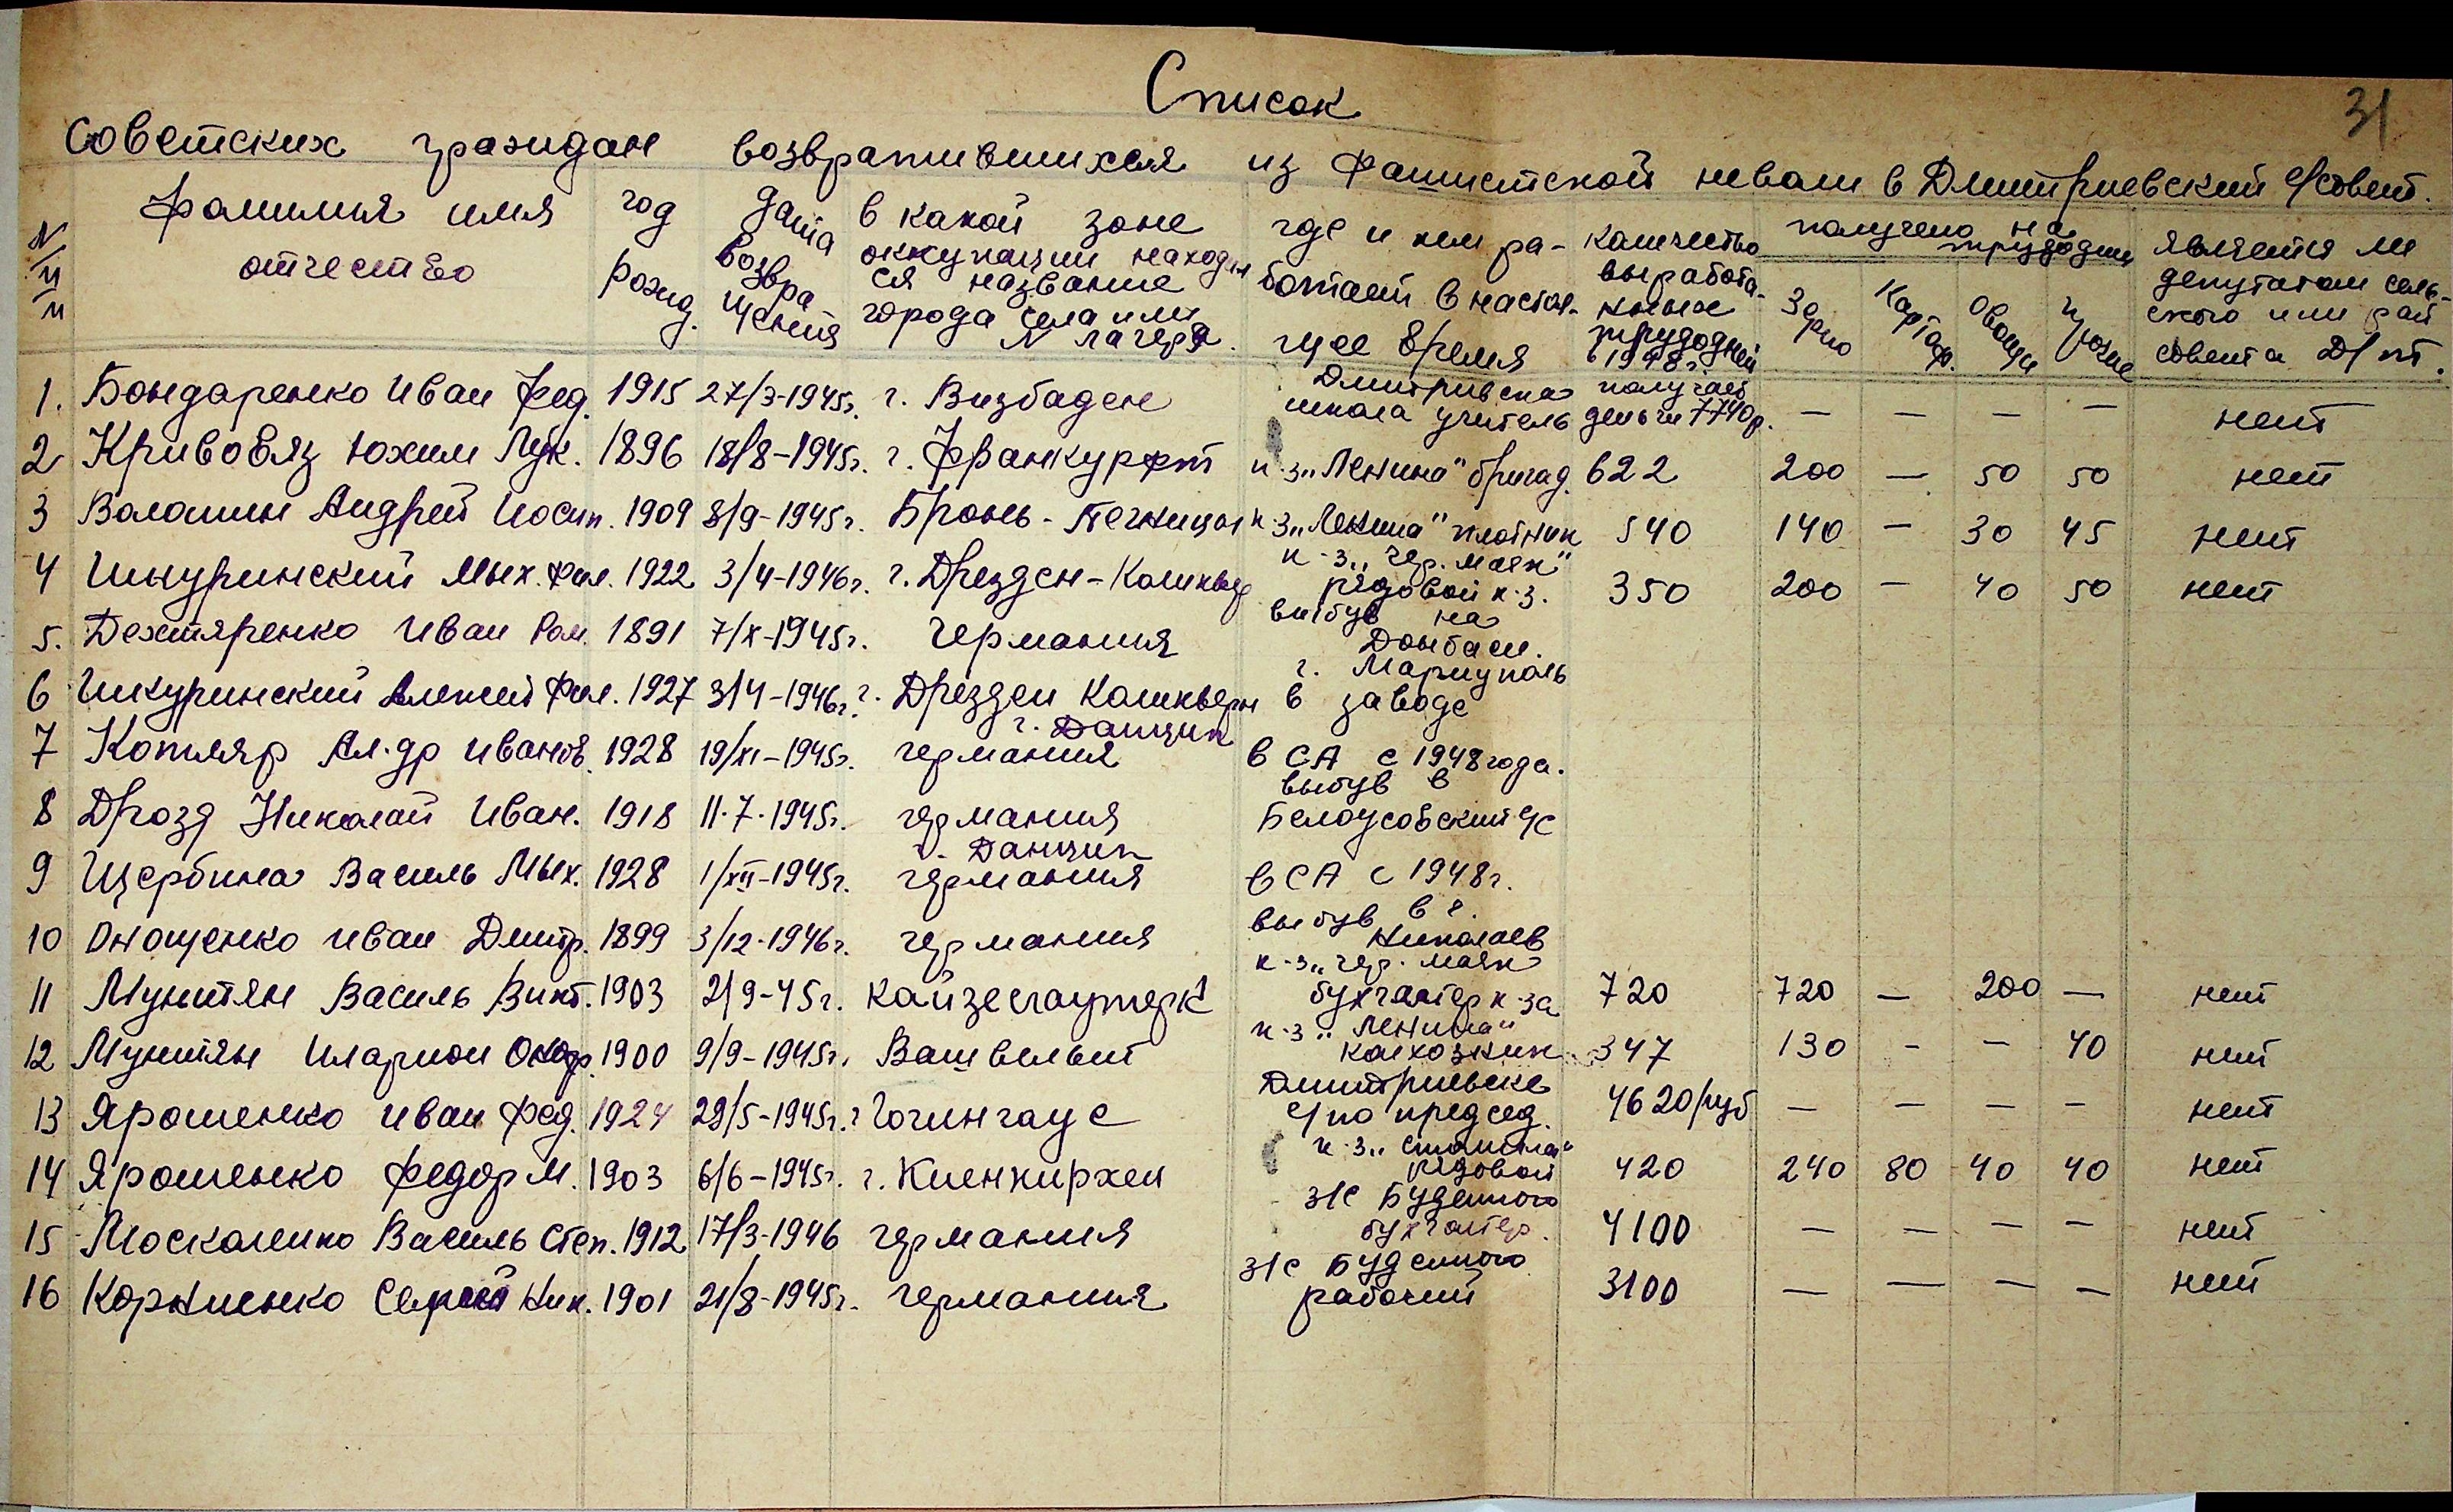 Список
31
советских граждан возвратившихся из фашистской неволи в Дмитриевский с/совет.
N п/п
фамилия имя отчество
год рожд.
дата возвращения
в какой зоне оккупации находился название города села или N лагеря.
где и кем работает в настоящее время
количество выработанных трудодней в 1948 г.
получено на трудодни
Зерно
Картоф.
Овощи
прочие
является ли депутатом сельского или рай совета Д/т.
1. Бондаренко Иван Фед. 1915 27/3-1945г. г. Визбаден Дмитривска школа учитель получает деньги 7740р. — — — — нет
2 Кривовяз Юхим Лук. 1896 18/8-1945г. г. Франкурфт к-з „Ленина" бригад. 622 200 — 50 50 нет
3 Волошин Андрей Иосип. 1909 8/9-1945г. Бронь-Печницы к-з „Ленина" плотник 540 140 — 30 45 нет
4 Шкуринский Мых. Фил. 1922 3/4-1946г. г. Дрезден- к-з „Чер. Маяк" рядовой к-з. 350 200 — 40 50 нет
5. Дехтяренко Иван Ром. 1891 7/X-1945г. Германия выбув на Донбасс.
6 Шкуринский Алексей Фил. 1927 3/4-1946г. г. Дрезден г. Мариуполь в заводе
7 Котляр Ал-др Иванов. 1928 19/XI-1945г. г. Данциг германия в СА с 1948 года.
8 Дрозд Николай Иван. 1918 11.7.1945г. германия выбув в Белоусовский с/с
9 Щербина Василь Мых. 1928 1/XII-1945г. г. Данциг германия в СА с 1948г.
10 Онощенко Иван Дмитр. 1899 3/12-1946г. германия выбув в г. Николаев
11 Мунтян Василь Викт. 1903 2/9-45г. Кайзеслаутерк к-з „Чер. Маяк бухгалтер к-за 720 720 — 200 — нет
12 Мунтян Иларион 1900 9/9-1945г. Вашвельт к-з „Ленина" колхозник 347 130 - - 40 нет
13 Ярошенко Иван Фед. 1924 29/5-1945г. г. Гочингаус Дмитриевске с/по председ. 4620 руб — — — — нет
14 Ярошенко Федор М. 1903 6/6-1945г. г. Киенкирхен к-з „Сталина" рядовой 420 240 80 40 40 нет
15 Москаленко Василь Степ. 1912 17/3-1946 германия з/с Буденного бухгалтер. 4100 — — — — нет
16 Корниенко Сергей Ник. 1901 21/8-1945г. германия з/с Буденного рабочий 3100 — — — — нет